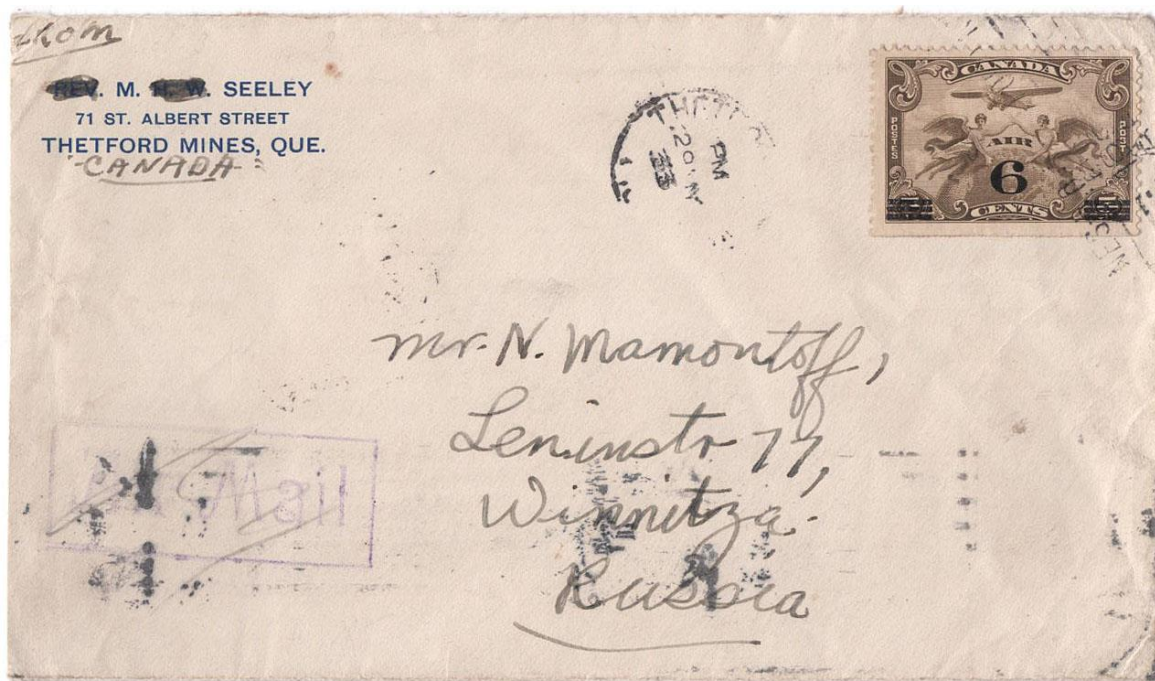 from
REV. M. H. W. SEELEY
71 ST. ALBERT STREET
THETFORD MINES, QUE.
-CANADA-
PM
33
CANADA
POSTES
POST
AIR
6
CENTS
Mr. N. Mamontoff,
Leninstr 77,
Winnitza.
Russia
Air Mail